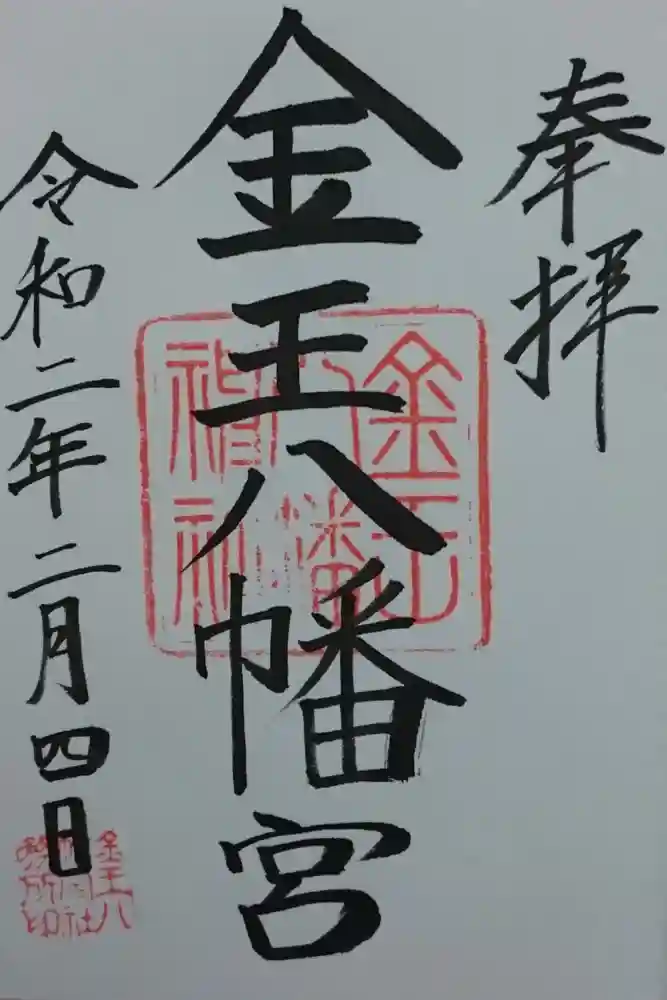 奉拝
金王八幡宮
金王八幡神社
令和二年二月四日